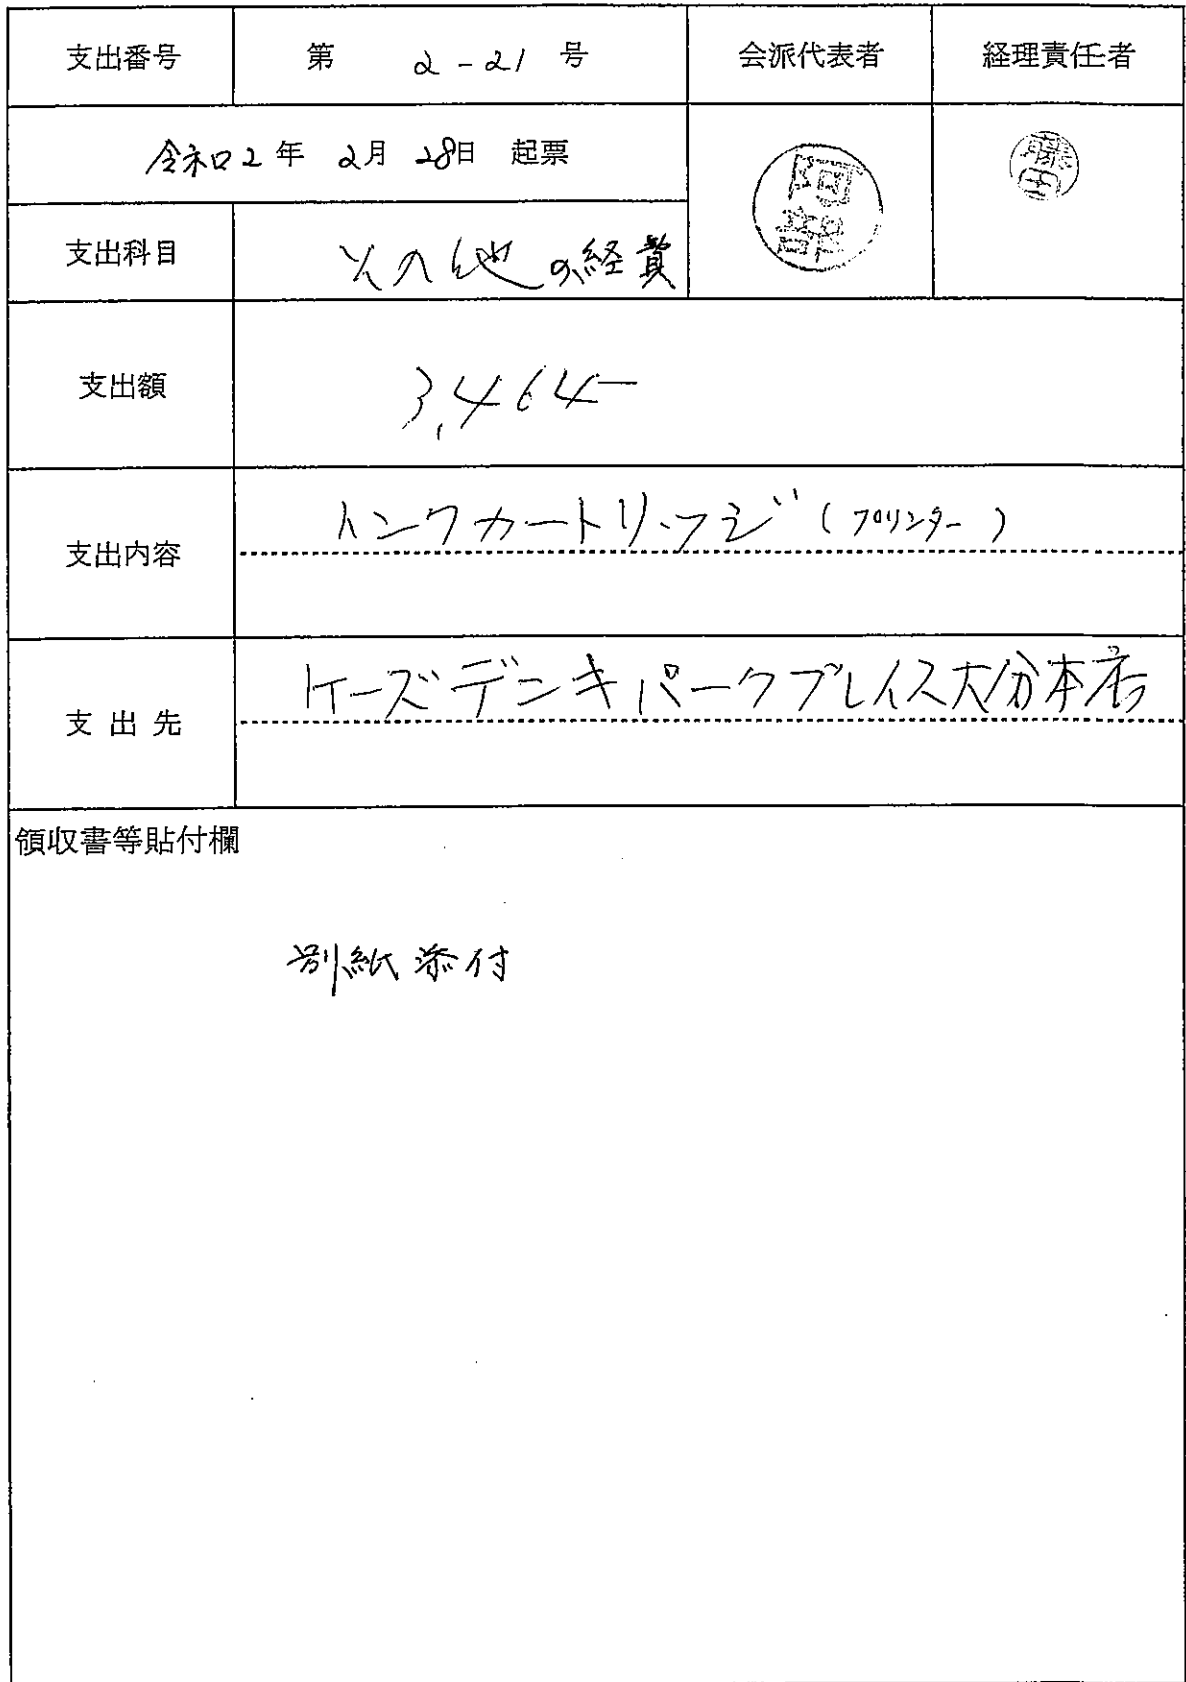 支出番号 第 2-21 号 会派代表者 経理責任者
令和2年 2月 28日 起票
阿部
支出科目 その他の経費
支出額 3,464-
支出内容 インクカートリッジ(プリンター)
支出先 ケーズデンキパークプレイス大分本店
領収書等貼付欄
別紙添付